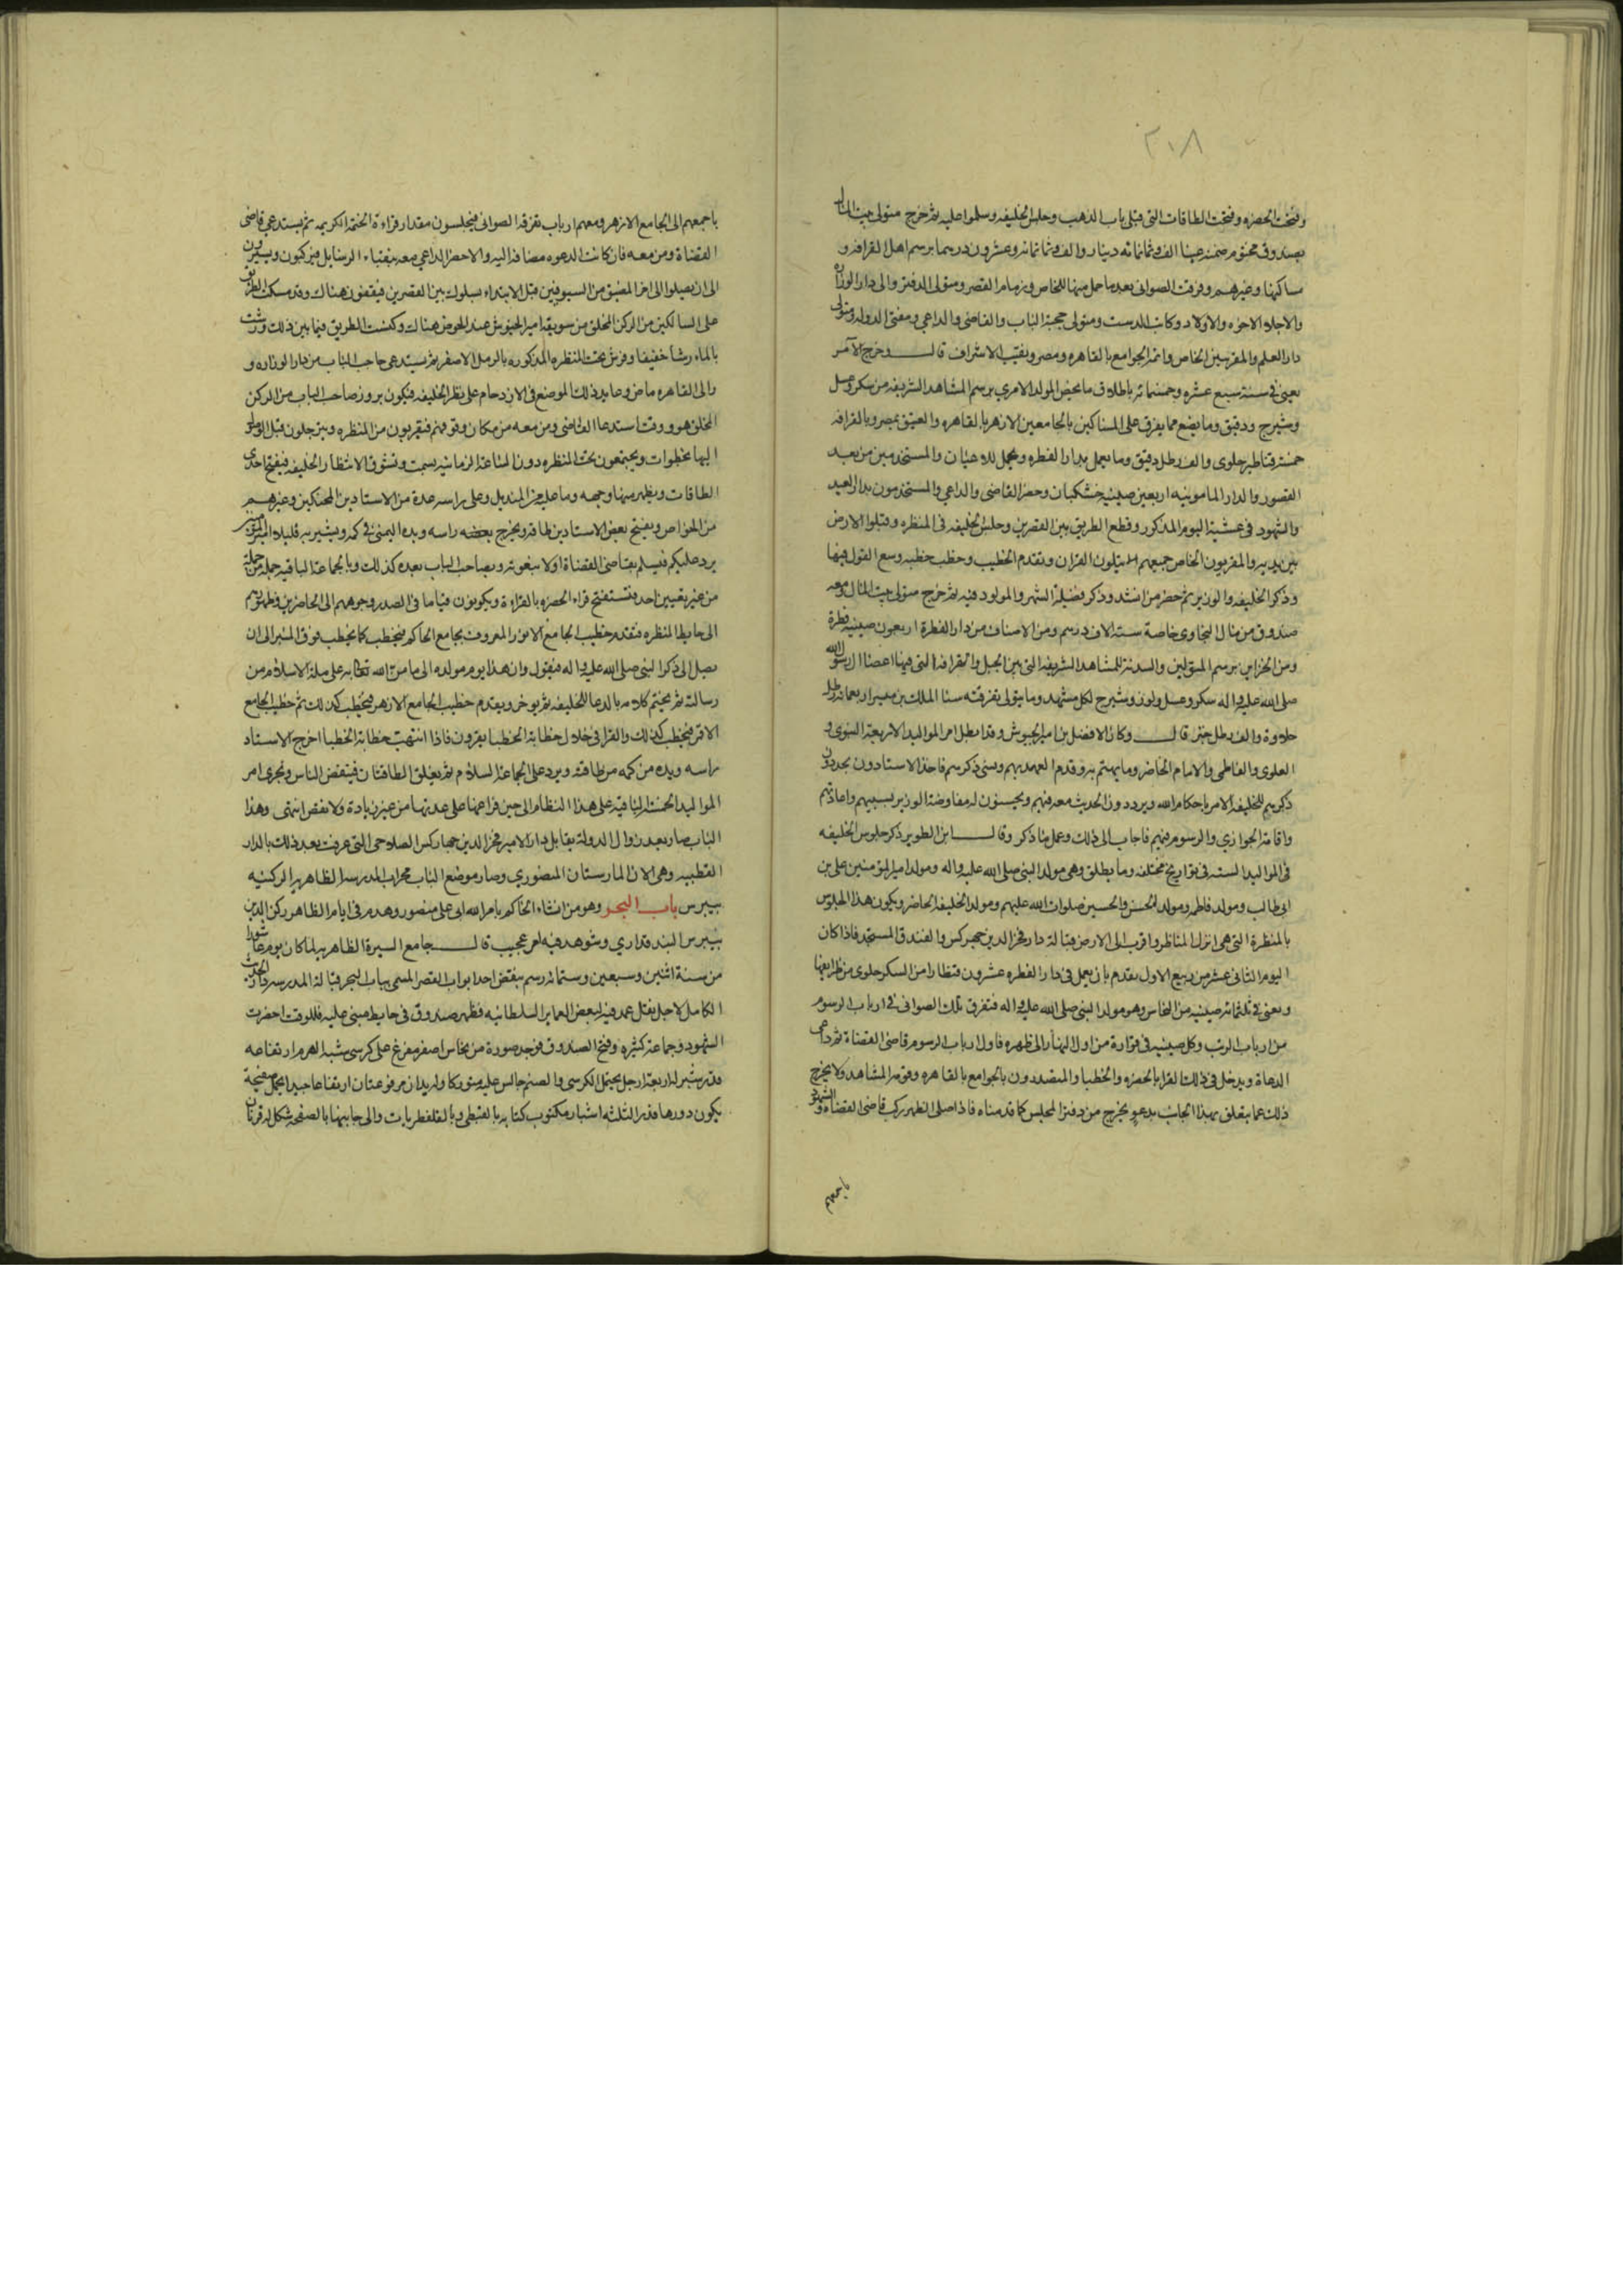 ٢٠٨
وفتحت الحضره وفتحت الطاقات التى قبلى باب الذهب وجلس الخليفه وسلموا عليه ثم خرج متولى بيت المال
بصندوق مختوم ضمنه عينا الف وثمانمائه دينار والف وثمانمائه وعشرون درهما برسم اهل القرافه و
ساكنها وغيرهم وفرقت الصوانى بعد ما حمل منها للخاص وزمام القصر ومتولى الدفتر والى دار الوزاره
والاجلاء الاخوه والاولاد وكاتب الدست ومتولى حجبة الباب والقاضى والداعى ومفتى الدوله ومتولى
دار العلم والمقرىين الخاص وائمة الجوامع بالقاهره ومصر وبقيت الاشراف قال وخرج الآمر
يعنى فى سنة سبع عشره وخمسمائه باطلاق ما يخص المولد الامرى برسم المشاهد الشريفه من سكر وعسل
وشيرج ودقيق وما يصنع مما يفرق على المساكين بالجامعين الازهر بالقاهره والعتيق بمصر وبالقرافه
خمسة قناطير حلوى والف رطل دقيق وما يعمل بدار الفطره ويحمل للاعيان والمستخدمين من بعد
القصور والدار المامونيه اربعين صينيه خشكنان وحضر القاضى والداعى والمستخدمون بدار العيد
والشهود فى عشية اليوم المذكور وقطع الطريق بين القصرين وجلس الخليفه فى المنظره وقبلوا الارض
بين يديه والمقريون الخاص جميعهم يتلون القران وتقدم الخطيب وخطب خطبه وسع القول فيها
وذكر الخليفه والوزير ثم حضر من انشد وذكر فضيلة الشهر والمولود فيه ثم خرج متولى بيت المال ومعه
صندوق من مال النجاوى خاصة ستة الاف درهم ومن الاصناف من دار الفطرة اربعون صينيه فطرة
ومن الخزاين برسم المتولين والسدنة للمشاهد الشريفه التى بين الجبل والقرافه التى فيها اعضا ال رسول الله
صلى الله عليه واله سكر وعسل ولوز وشيرج لكل مشهد وما يتولى تفرقته سنا الملك بن ميسر اربعمائة رطل
حلاوة والف رطل خبز قال وكان الافضل بن امير الجيوش وقد ابطل امر الموالد الاربعة النبوى و
العلوى والفاطمى والامام الحاضر وما يهتم به وقدم العهد بهم ونسى ذكرهم فاخذ الاستادون يجددون
ذكرهم للخليفه الامر باحكام الله ويرددون الحديث معه فيهم ويحسنون له مفاوضة الوزير بسببهم واعادتهم
واقامة الجوارى والرسوم فيهم فاجاب الى ذلك وعمل ما ذكر وقال ابن الطوير ذكر جلوس الخليفه
فى الموالد السته فى تواريخ مختلفه وما يطلق وهى مولد النبى صلى الله عليه واله ومولد امير المومنين على بن
ابى طالب ومولد فاطمه ومولد الحسن والحسين صلوات الله عليهم ومولد الخليفه الحاضر ويكون هذا الجلوس
بالمنظرة التى هى انزل المناظر واقرب الى الارض قبالة دار فخر الدين جهركس والفندق المستجد فاذا كان
اليوم الثانى عشر من ربيع الاول تقدم بان يعمل فى دار الفطره عشرون قنطارا من السكر حلوى من طرايفها
وتعبى فى ثلثمائه صينيه من النحاس وهو مولد النبى صلى الله عليه واله فتفرق تلك الصوانى فى ارباب الرسوم
من ارباب الرتب وكل صينيه فى قوارة من اول النهار الى ظهره فاول ارباب الرسوم قاضى القضاة ثم داعى
الدعاة ويدخل فى ذلك القرا بالحضره والخطبا والمتصدرون بالجوامع بالقاهره وقومه المشاهد ولا يخرج
ذلك عما يتعلق بهذا الجانب بدعو يخرج من دفتر المجلس كما قدمناه فاذا صلى الظهر ركب قاضى القضاة والشهود
باجمعهم
باجمعهم الى الجامع الازهر ومعهم ارباب تفرقة الصوانى فيجلسون مقدار قراءة الختمه الكريمه ثم يستدعى قاضى
القضاة ومن معه فان كانت الدعوه مضافه اليه والا حضر الداعى معه بنقباء الرسايل فيركبون ويسيرون
الى ان يصلوا الى اخر المضيق من السيوفيين قبل الابتداء بسلوك بين القصرين فيقفون هناك وقد سكت الطريق
على السالكين من الركن المخلق من سويقه امير الجيوش عند الحوض هناك وكنست الطريق فيما بين ذلك ورشت
بالماء رشا خفيفا وفرش تحت المنظره المذكوره بالرمل الاصفر ثم يستدعى صاحب الباب من دار الوزاره و
والى القاهره ماض وعايد ذلك الموضع فى الازدحام على نظر الخليفه فيكون بروز صاحب الباب من الركن
المخلق هو وقت استدعا القاضى ومن معه من مكان وقوفهم فيقربون من المنظره ويترجلون قبل الوصول
اليها بخطوات ويجتمعون تحت المنظره دون الساعة الزمانيه بسمت وتشوق لانتظار الخليفه فيفتح احدى
الطاقات ويظهر منها وجهه وما عليه من المنديل وعلى راسه عدة من الاستادين المحنكين وغيرهم
من الخواص ويفتح بعض الاستادين طاقه ويخرج بعضه راسه ويده اليمنى فى كمه ويشير به قليلا امير المومنين
يرد عليكم فيسلم بقاضى القضاة اولا بنعوته وبصاحب الباب بعده كذلك وبالجماعة الباقيه جمله جمله
من غير تعيين احد فتستفتح قراء الحضره بالقراءة ويكونون قياما فى الصدر وجوههم الى الحاضرين وظهورهم
الى حايط المنظره فتقدم خطيب الجامع الانور المعروف بجامع الحاكم فيخطب كما يخطب فوق المنبر الى ان
يصل الى ذكر النبى صلى الله عليه واله فيقول وان هذا يوم مولده الى ما من الله تعالى به على ملة الاسلام من
رسالته ثم يختم كلامه بالدعا للخليفه ثم يوخر ويقدم خطيب الجامع الازهر فيخطب كذلك ثم خطيب الجامع
الاقمر فيخطب كذلك والقرا فى خلال خطابة الخطبا يقرون فاذا انتهت خطابة الخطبا اخرج الاستاد
راسه ويده من كمه من طاقته ويرد على الجماعة السلام ثم يغلق الطاقتان فينفض الناس وتجرى امر
الموالد الخمسة الباقيه على هذا النظام الى حين فراغها على عدتها من غير زيادة ولا نقص انتهى وهذا
الباب صار بعد زوال الدولة يقابل دار الامير فخر الدين جهاركس الصلاحى التى عرفت بعد ذلك بالدار
القطبيه وهى الان المارستان المنصورى وصار موضع الباب محراب المدرسه الظاهريه الركنيه
بيبرس باب البحر وهو من انشاء الحاكم بامر الله ابى على منصور وهدم فى ايام الظاهر ركن الدين
بيبرس البندقدارى وشوهد فيه امر عجيب قال جامع السيرة الظاهريه لما كان يوم عاشورا
من سنة اثنين وسبعين وستمائه رسم بنقض احد ابواب القصر المسمى بباب البحر قبالة المدرسه دار الحديث
الكامل لاجل نقل عمد فيه لبعض العماير السلطانيه فظهر صندوق فى حايط مبنى عليه فللوقت احضرت
الشهود وجماعة كثيره وفتح الصندوق فوجد صورة من نحاس اصفر مفرغ على كرسى شبه الهرم ارتفاعه
قدر شبر له اربعة ارجل تحمل الكرسى والصنم جالس عليه متوركا وله يدان مرفوعتان ارتفاعا جيدا يحمل صفيحة
يكون دورها قدر الثلثه اشبار مكتوب كتابه بالقبطى وبالقلفطريات والى جانبها بالصفحه شكل له قرنان